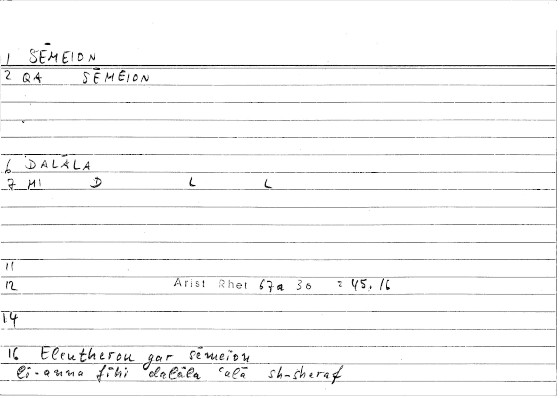 1 SĒMEION
2 QA SĒMEION
6 DALĀLA
7 MI D L L
11
12 Arist Rhet 67a 30 = 45,16
14
16 Eleutherou gar sēmeion
li-anna fīhi dalāla ʿalā sh-sheraf